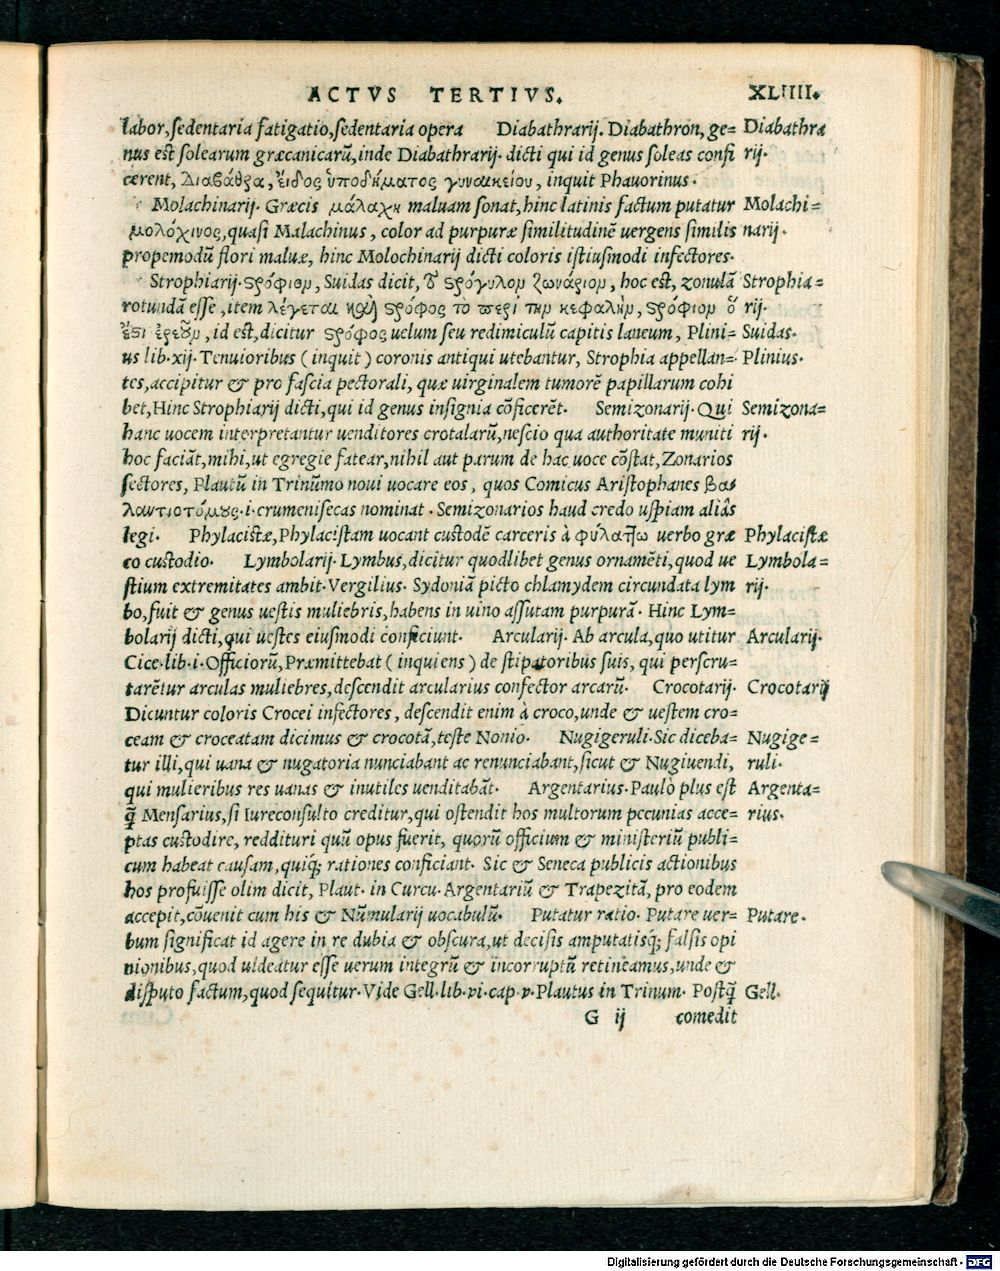 ACTVS TERTIVS.
XLIIII.
labor, sedentaria fatigatio, sedentaria opera Diabathrarij. Diabathron, ge= Diabathra
nus est solearum græcanicarũ, inde Diabathrarij. dicti qui id genus soleas confi rij.
cerent, Διαβάθρα, ἔιδος ὑποδήματος γυναικείου, inquit Phauorinus.
Molachinarij. Græcis μάλαχη maluam sonat, hinc latinis factum putatur Molachi=
μολόχινος, quasi Malachinus, color ad purpuræ similitudinẽ uergens similis narij.
propemodũ flori maluæ, hinc Molochinarij dicti coloris istiusmodi infectores.
Strophiarij. στρόφιον, Suidas dicit, στρόγυλον ζωνάριον, hoc est, zonulã Strophia=
rotundã esse, item λέγεται καὶ στρόφος τὸ περὶ τὴν κεφαλὴν, στρόφιον ὅ rij.
ἔστι ἐρεοῦν, id est, dicitur στρόφος uelum seu redimiculũ capitis laneum, Plini= Suidas.
us lib.xij. Tenuioribus (inquit) coronis antiqui utebantur, Strophia appellan= Plinius.
tes, accipitur & pro fascia pectorali, quæ uirginalem tumorẽ papillarum cohi
bet, Hinc Strophiarij dicti, qui id genus insignia cõficerẽt. Semizonarij. Qui Semizona=
hanc uocem interpretantur uenditores crotalarũ, nescio qua authoritate muniti rij.
hoc faciãt, mihi, ut egregie fatear, nihil aut parum de hac uoce cõstat, Zonarios
sectores, Plautũ in Trinũmo noui uocare eos, quos Comicus Aristophanes βα=
λαντιοτόμους.i.crumenisecas nominat. Semizonarios haud credo uspiam aliâs
legi. Phylacistæ, Phylacistam uocant custodẽ carceris à φύλαττω uerbo græ Phylacistæ
co custodio. Lymbolarij. Lymbus, dicitur quodlibet genus ornamẽti, quod ue Lymbola=
stium extremitates ambit. Vergilius. Sydoniã picto chlamydem circundata lym rij.
bo, fuit & genus uestis muliebris, habens in uino assutam purpurã. Hinc Lym=
bolarij dicti, qui uestes eiusmodi conficiunt. Arcularij. Ab arcula, quo utitur Arcularij.
Cice.lib.i.Officiorũ, Præmittebat (inquiens) de stipatoribus suis, qui perscru=
tarẽtur arculas muliebres, descendit arcularius confector arcarũ. Crocotarij. Crocotarij
Dicuntur coloris Crocei infectores, descendit enim à croco, unde & uestem cro=
ceam & croceatam dicimus & crocotã, teste Nonio. Nugigeruli. Sic diceba= Nugige=
tur illi, qui uana & nugatoria nunciabant ac renunciabant, sicut & Nugiuendi, ruli.
qui mulieribus res uanas & inutiles uenditabãt. Argentarius. Paulò plus est Argenta=
q̃ Mensarius, si Iureconsulto creditur, qui ostendit hos multorum pecunias acce= rius.
ptas custodire, reddituri quũ opus fuerit, quorũ officium & ministeriũ publi=
cum habeat causam, quiq; rationes conficiant. Sic & Seneca publicis actionibus
hos profuisse olim dicit, Plaut. in Curcu. Argentariũ & Trapezitã, pro eodem
accepit, cõuenit cum his & Nũmularij uocabulũ. Putatur ratio. Putare uer= Putare.
bum significat id agere in re dubia & obscura, ut decisis amputatisq; falsis opi
nionibus, quod uideatur esse uerum integrũ & incorruptũ retineamus, unde &
disputo factum, quod sequitur. Vide Gell.lib.vi.cap.v. Plautus in Trinum. Postq̃ Gell.
G ij comedit
Digitalisierung gefördert durch die Deutsche Forschungsgemeinschaft - DFG